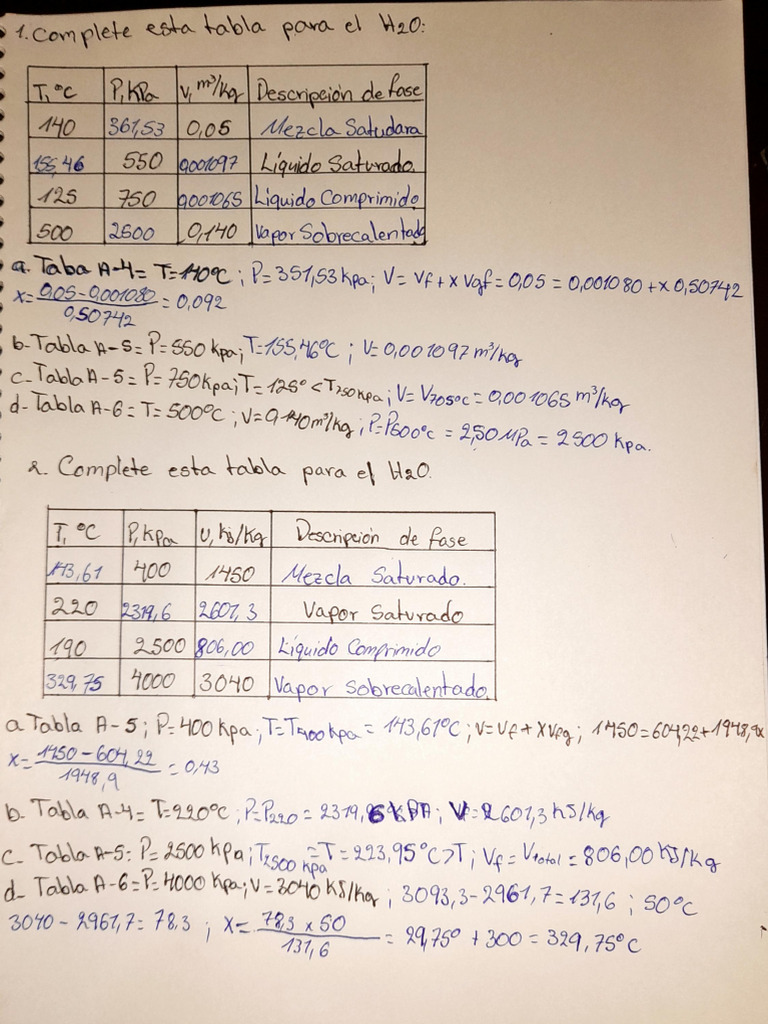 1. Complete esta tabla para el H2O:
T, °C P, KPa V, m³/kg Descripción de fase
140 361,53 0,05 Mezcla Satudara
155,46 550 0,001097 Líquido Saturado.
125 750 0,001065 Líquido Comprimido
500 2500 0,140 Vapor Sobrecalentado
a. Taba A-4 = T=140°C ; P=351,53 kpa ; V = Vf + x Vgf = 0,05 = 0,001080 + x 0,50742
x = 0,05 - 0,001080 / 0,50742 = 0,092
b- Tabla A-5 = P=550 kpa; T=155,46°C ; V=0,001097 m³/kg
c- Tabla A-5 = P= 750kpa; T= 125° < T750 kpa; V= V705°c = 0,001065 m³/kg
d- Tabla A-6 = T= 500°C ; V=0,140m³/kg ; P=P500°c = 2,50 MPa = 2500 kpa.
2. Complete esta tabla para el H2O.
T, °C P, kpa U, KJ/Kg Descripción de fase
143,61 400 1450 Mezcla Saturado.
220 2319,6 2601,3 Vapor Saturado
190 2500 806,00 Líquido Comprimido
329,75 4000 3040 Vapor Sobrecalentado.
a Tabla A-5 ; P= 400 kpa ; T=T400 kpa = 143,61°C ; V=Vf + XVfg ; 1450=604,22+1948,9x
x= 1450 - 604,22 / 1948,9 = 0,43
b. Tabla A-4 = T=220°C ; P=P220 = 2319,6 kPA ; V=2601,3 kJ/kg
c- Tabla A-5: P= 2500 kpa ; T2500 kpa = T = 223,95°C > T ; Vf = Vtotal = 806,00 KJ/kg
d- Tabla A-6 = P=4000 Kpa; V= 3040 KJ/kg ; 3093,3 - 2961,7 = 131,6 ; 50°C
3040 - 2961,7 = 78,3 ; x= 78,3 x 50 / 131,6 = 29,75° + 300 = 329,75°C